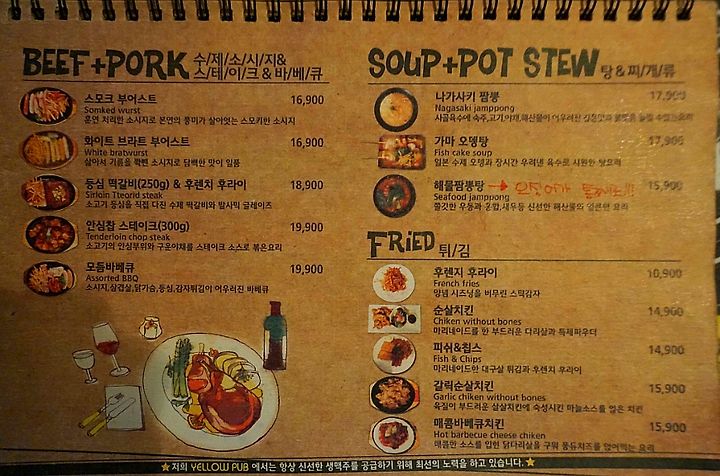 BEEF+PORK 수/제/소/시/지&
스/테/이/크 & 바/베/큐
스모크 부어스트 16,900
Somked wurst
훈연 처리한 소시지로 본연의 풍미가 살아있는 스모키한 소시지
화이트 브라트 부어스트 16,900
White bratwurst
살아서 기름을 쫙뺀 소시지로 담백한 맛이 일품
등심 떡갈비(250g) & 후렌치 후라이 18,900
Sirloin Tteorid steak
소고기 등심을 직접 다진 수제 떡갈비와 발사믹 글레이즈
안심찹 스테이크(300g) 19,900
Tenderloin chop steak
소고기의 안심부위와 구운야채를 스테이크 소스로 볶은요리
모듬바베큐 19,900
Assorted BBQ
소시지,삼겹살,닭가슴,등심,감자튀김이 어우러진 바베큐
SOUP+POT STEW 탕&찌/개/류
나가사키 짬뽕 17,900
Nagasaki jamppong
사골육수에 숙주,고기,야채,해산물이 어우러진
가마 오뎅탕 17,900
Fish cake soup
일본 수제 오뎅과 장시간 우려낸 육수로 시원한 탕요리
해물짬뽕탕 → 15,900
Seafood jamppong
쫄깃한 우동과 홍합,새우등 신선한 해산물의 얼큰한 요리
FRiED 튀/김
후렌치 후라이 10,900
French fries
양념 시즈닝을 버무린 스틱감자
순살치킨 14,900
Chiken without bones
마리네이드를 한 부드러운 다리살과 특제파우더
피쉬&칩스 14,900
Fish & Chips
마리네이드한 대구살 튀김과 후렌치 후라이
갈릭순살치킨 15,900
Garlic chiken without bones
육질이 부드러운 살살치킨에 숙성시킨 마늘소스를 얹은 치킨
매콤바베큐치킨 15,900
Hot barbecue cheese chiken
매콤한 소스를 입힌 닭다리살을 구워 퐁듀치즈를 얹어먹는 요리
★저희 YELLOW PUB 에서는 항상 신선한 생맥주를 공급하기 위해 최선의 노력을 하고 있습니다.★